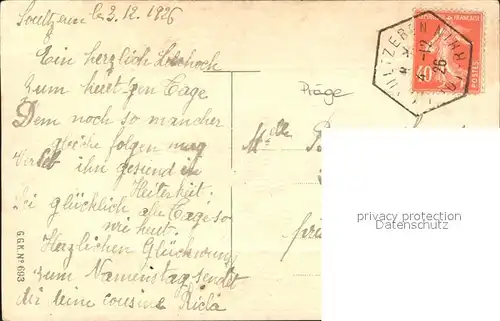 Soultzeren le 3.12.1926
Ein herzlich Lebehoch
zum heut'gen Tage
Dem noch so mancher
gleiche folgen mag
Verleb ihn gesund in
Heiterkeit.
Sei glücklich alle Tage so
wie heut.
Herzlichen Glückwunsch
zum Namenstag sendet
dir deine cousine
Präge
Melle
G.G.K. Nº 693
40
26
privacy protection
watermark